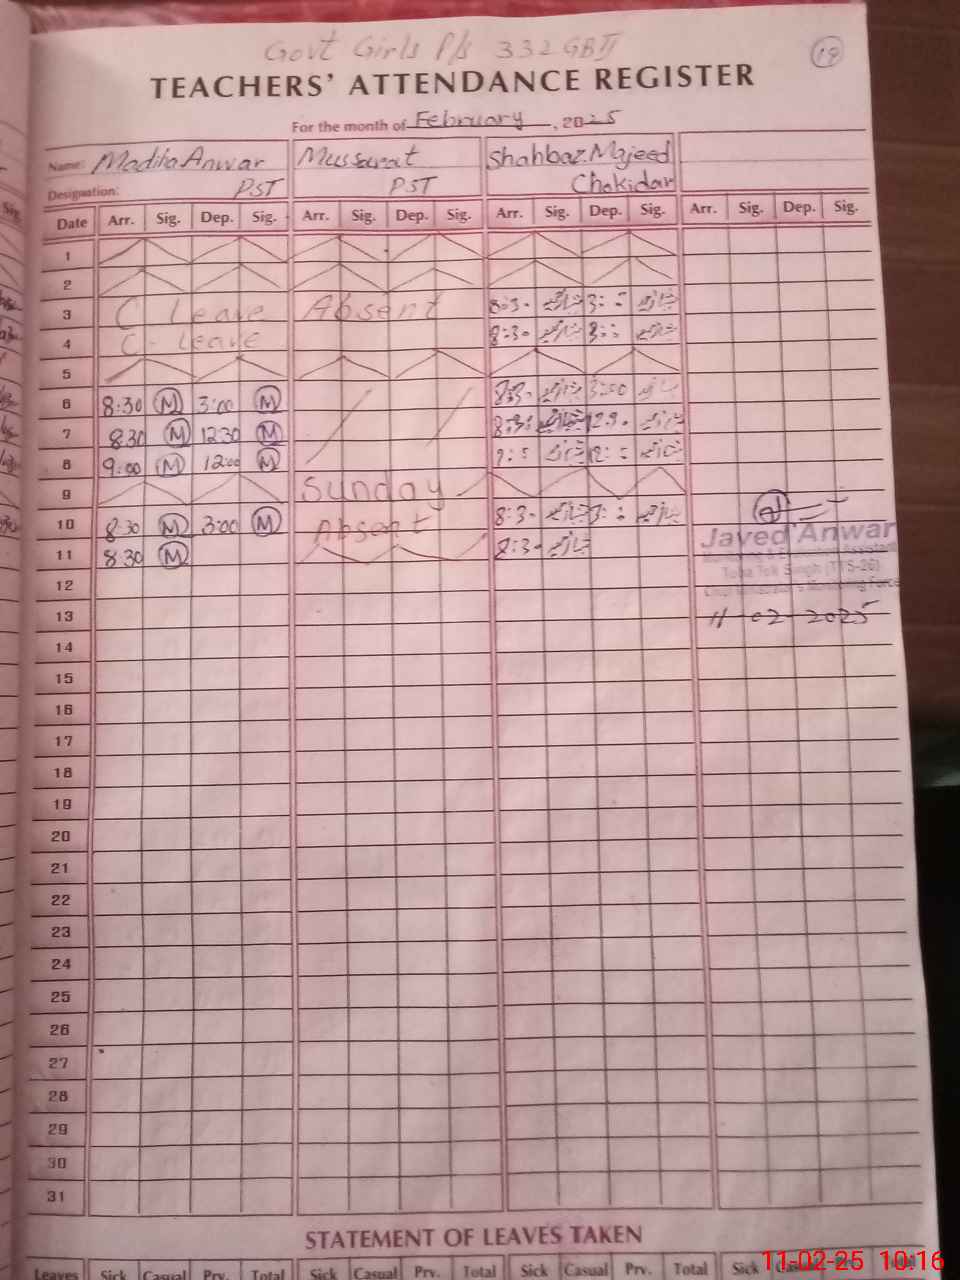 Govt Girls P/s 332 GB II
19
TEACHERS' ATTENDANCE REGISTER
For the month of February, 2025
Name: Madiha Anwar Mussarat Shahbaz Majeed
Designation: PST PST Chokidar
Date Arr. Sig. Dep. Sig. Arr. Sig. Dep. Sig. Arr. Sig. Dep. Sig. Arr. Sig. Dep. Sig.
1
2
3 C Leave Absent 8:30
4 C-Leave 8:30
5
6 8:30 M 3:00 M 3:00
7 8:30 M 12:30 M
8 9:00 M 12:00 M
9 Sunday
10 8:30 M 3:00 M Absent 8:30
11 8:30 M 8:30
Javed Anwar
Monitoring & Evaluation Assistant
Toba Tek Singh (TTS-26)
Chief Minister's Monitoring Force
12
13 11-02-2025
14
15
16
17
18
19
20
21
22
23
24
25
26
27
28
29
30
31
STATEMENT OF LEAVES TAKEN
Leaves Sick Casual Prv. Total Sick Casual Prv. Total Sick Casual Prv. Total Sick Casual Prv. Total
11-02-25 10:16